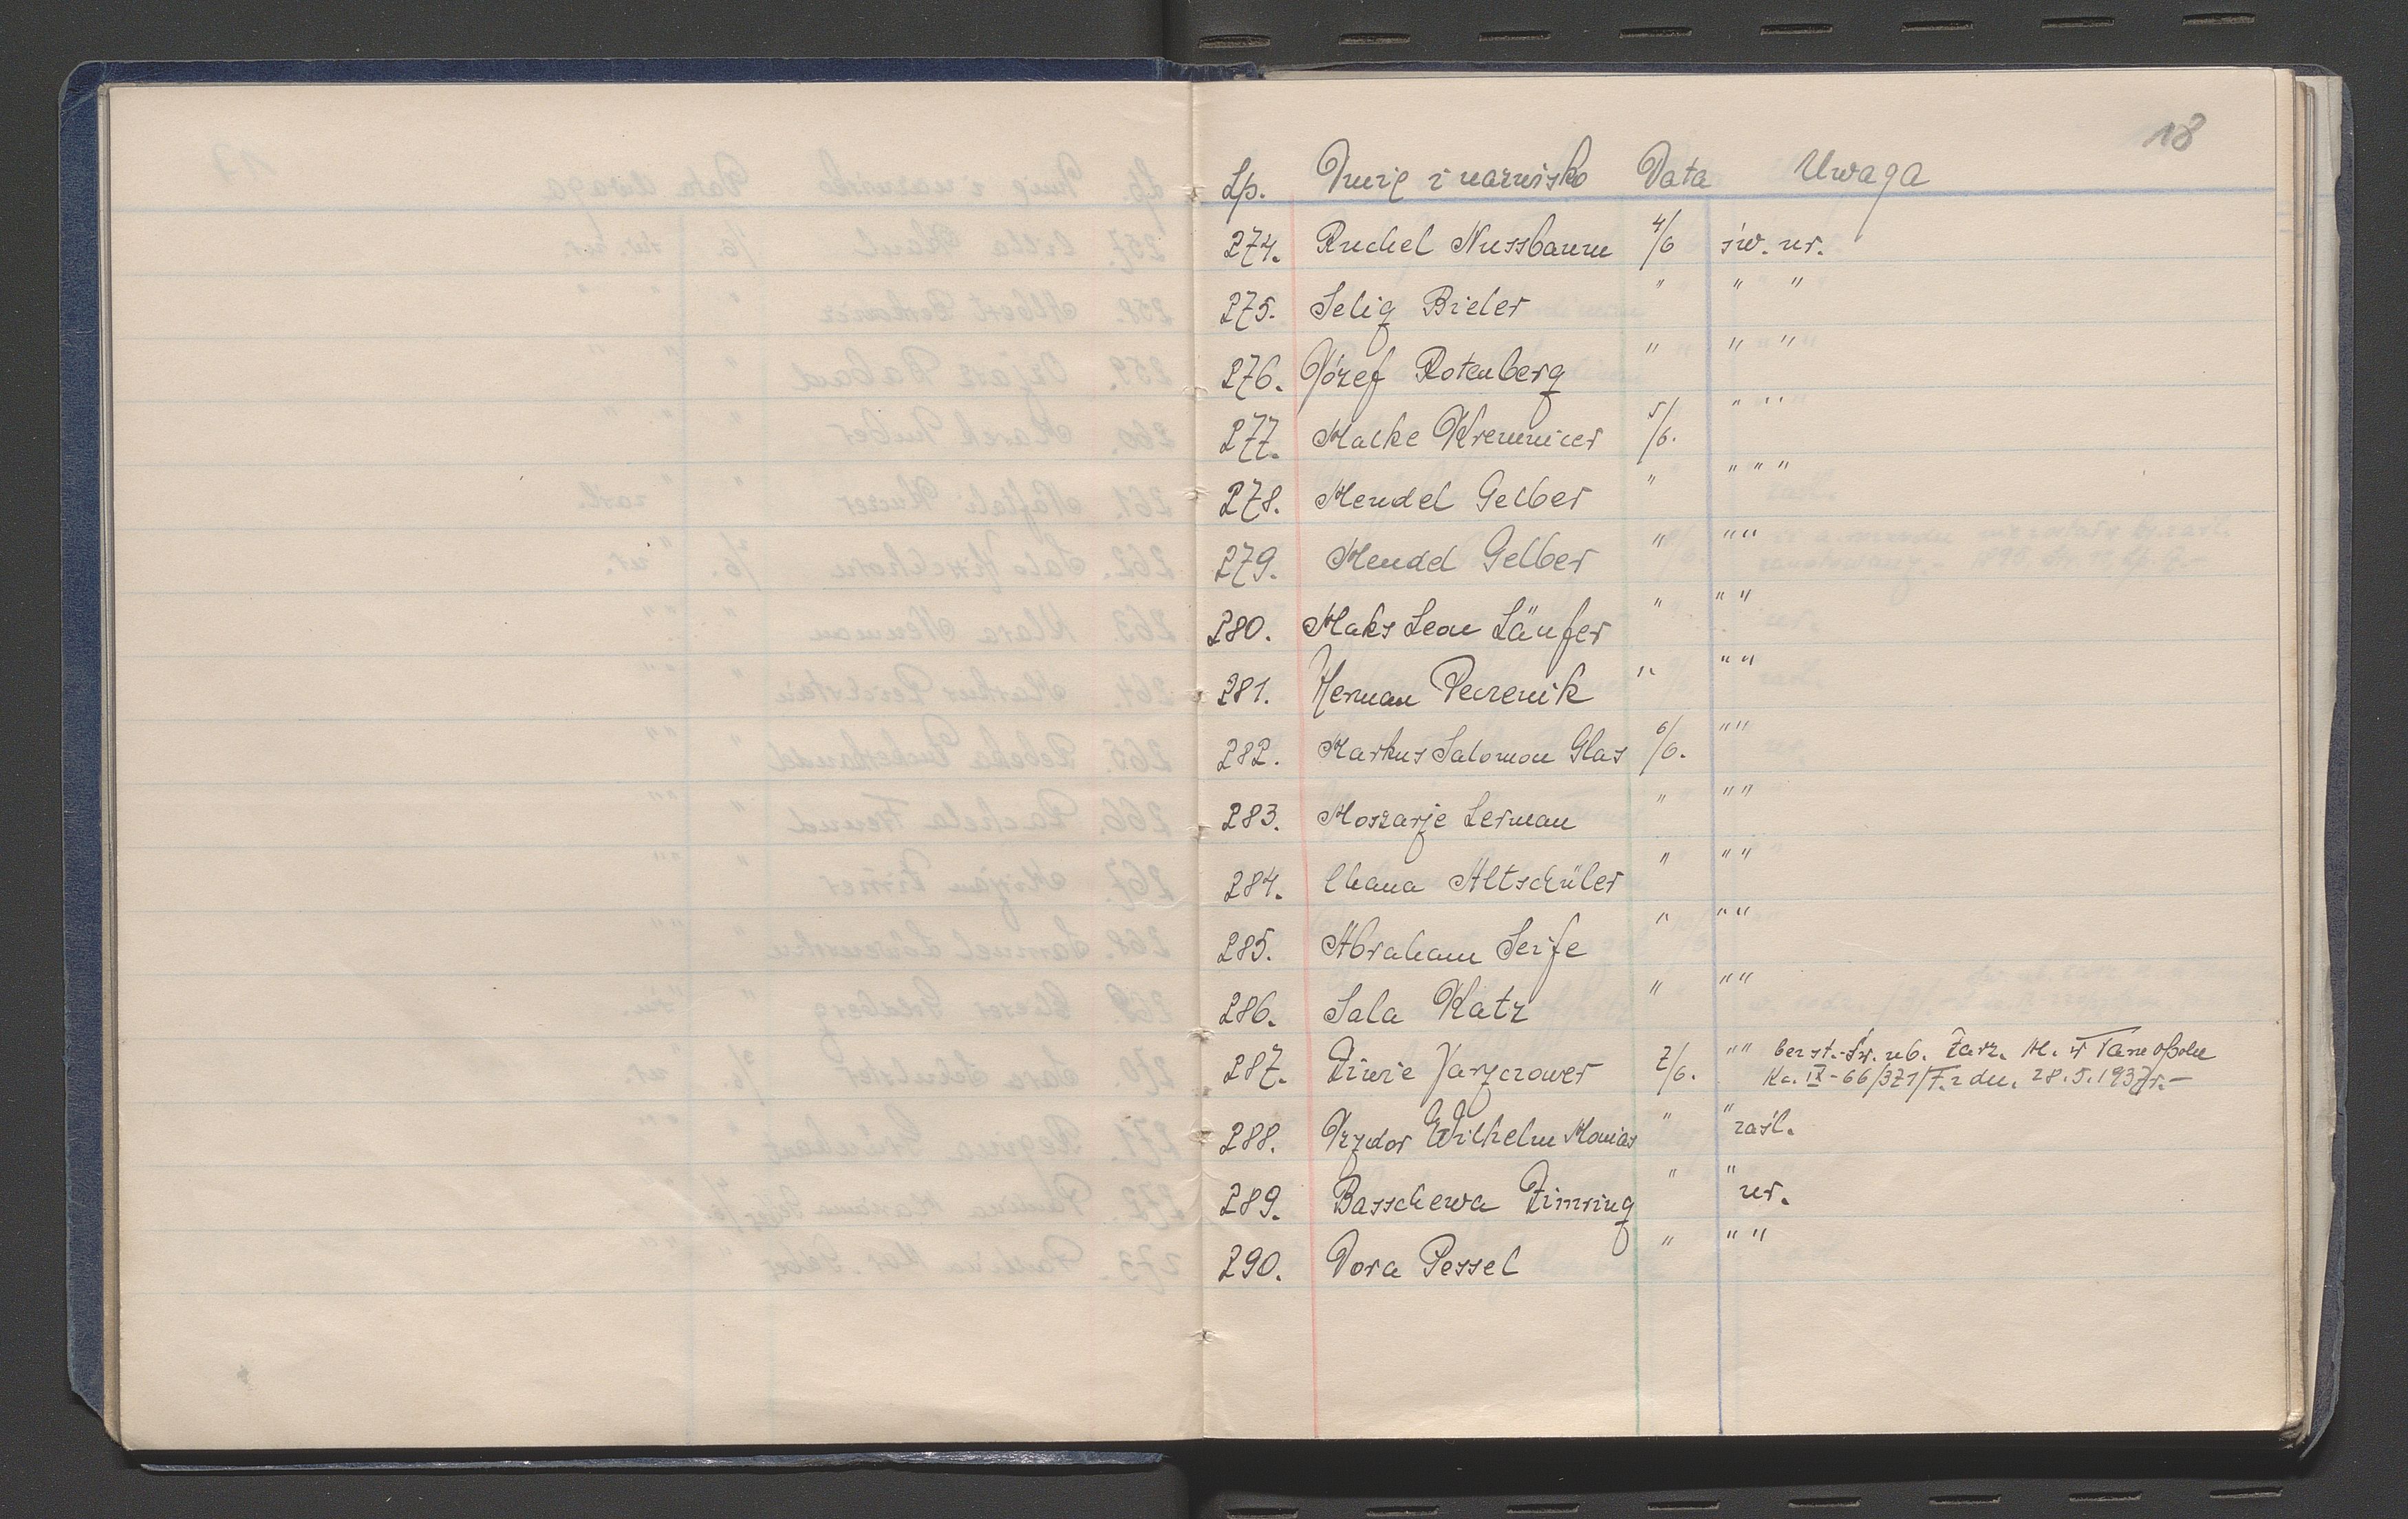 18
Lp. Imię i nazwisko Data Uwaga
274. Ruchel Nussbaum 4/6 św. ur.
275. Selig Bieler " " "
276. Józef Rotenberg " " "
277. Malke Kremnicer 5/6. " "
278. Mendel Gelber " " " "
279. Mendel Gelber " " "
280. Maks Leon Läufer " " "
281. Herman Peczenik " " "
282. Markus Salomon Glas 6/6. " "
283. Moszarje Lerman " " "
284. Chana Altschüler " " "
285. Abraham Seife " " "
286. Sala Katz " " "
287. Ziwie Jaryczower 7/6. " " bez st. Św. ub. Zarz. M. w Tarnopolu
Kc. IX-66/371/T. z dn. 28.5.1937r.-
288. Izydor Wilhelm Monias " " zaśl.
289. Basschewa Zimring " " ur.
290. Dora Pessel " " "